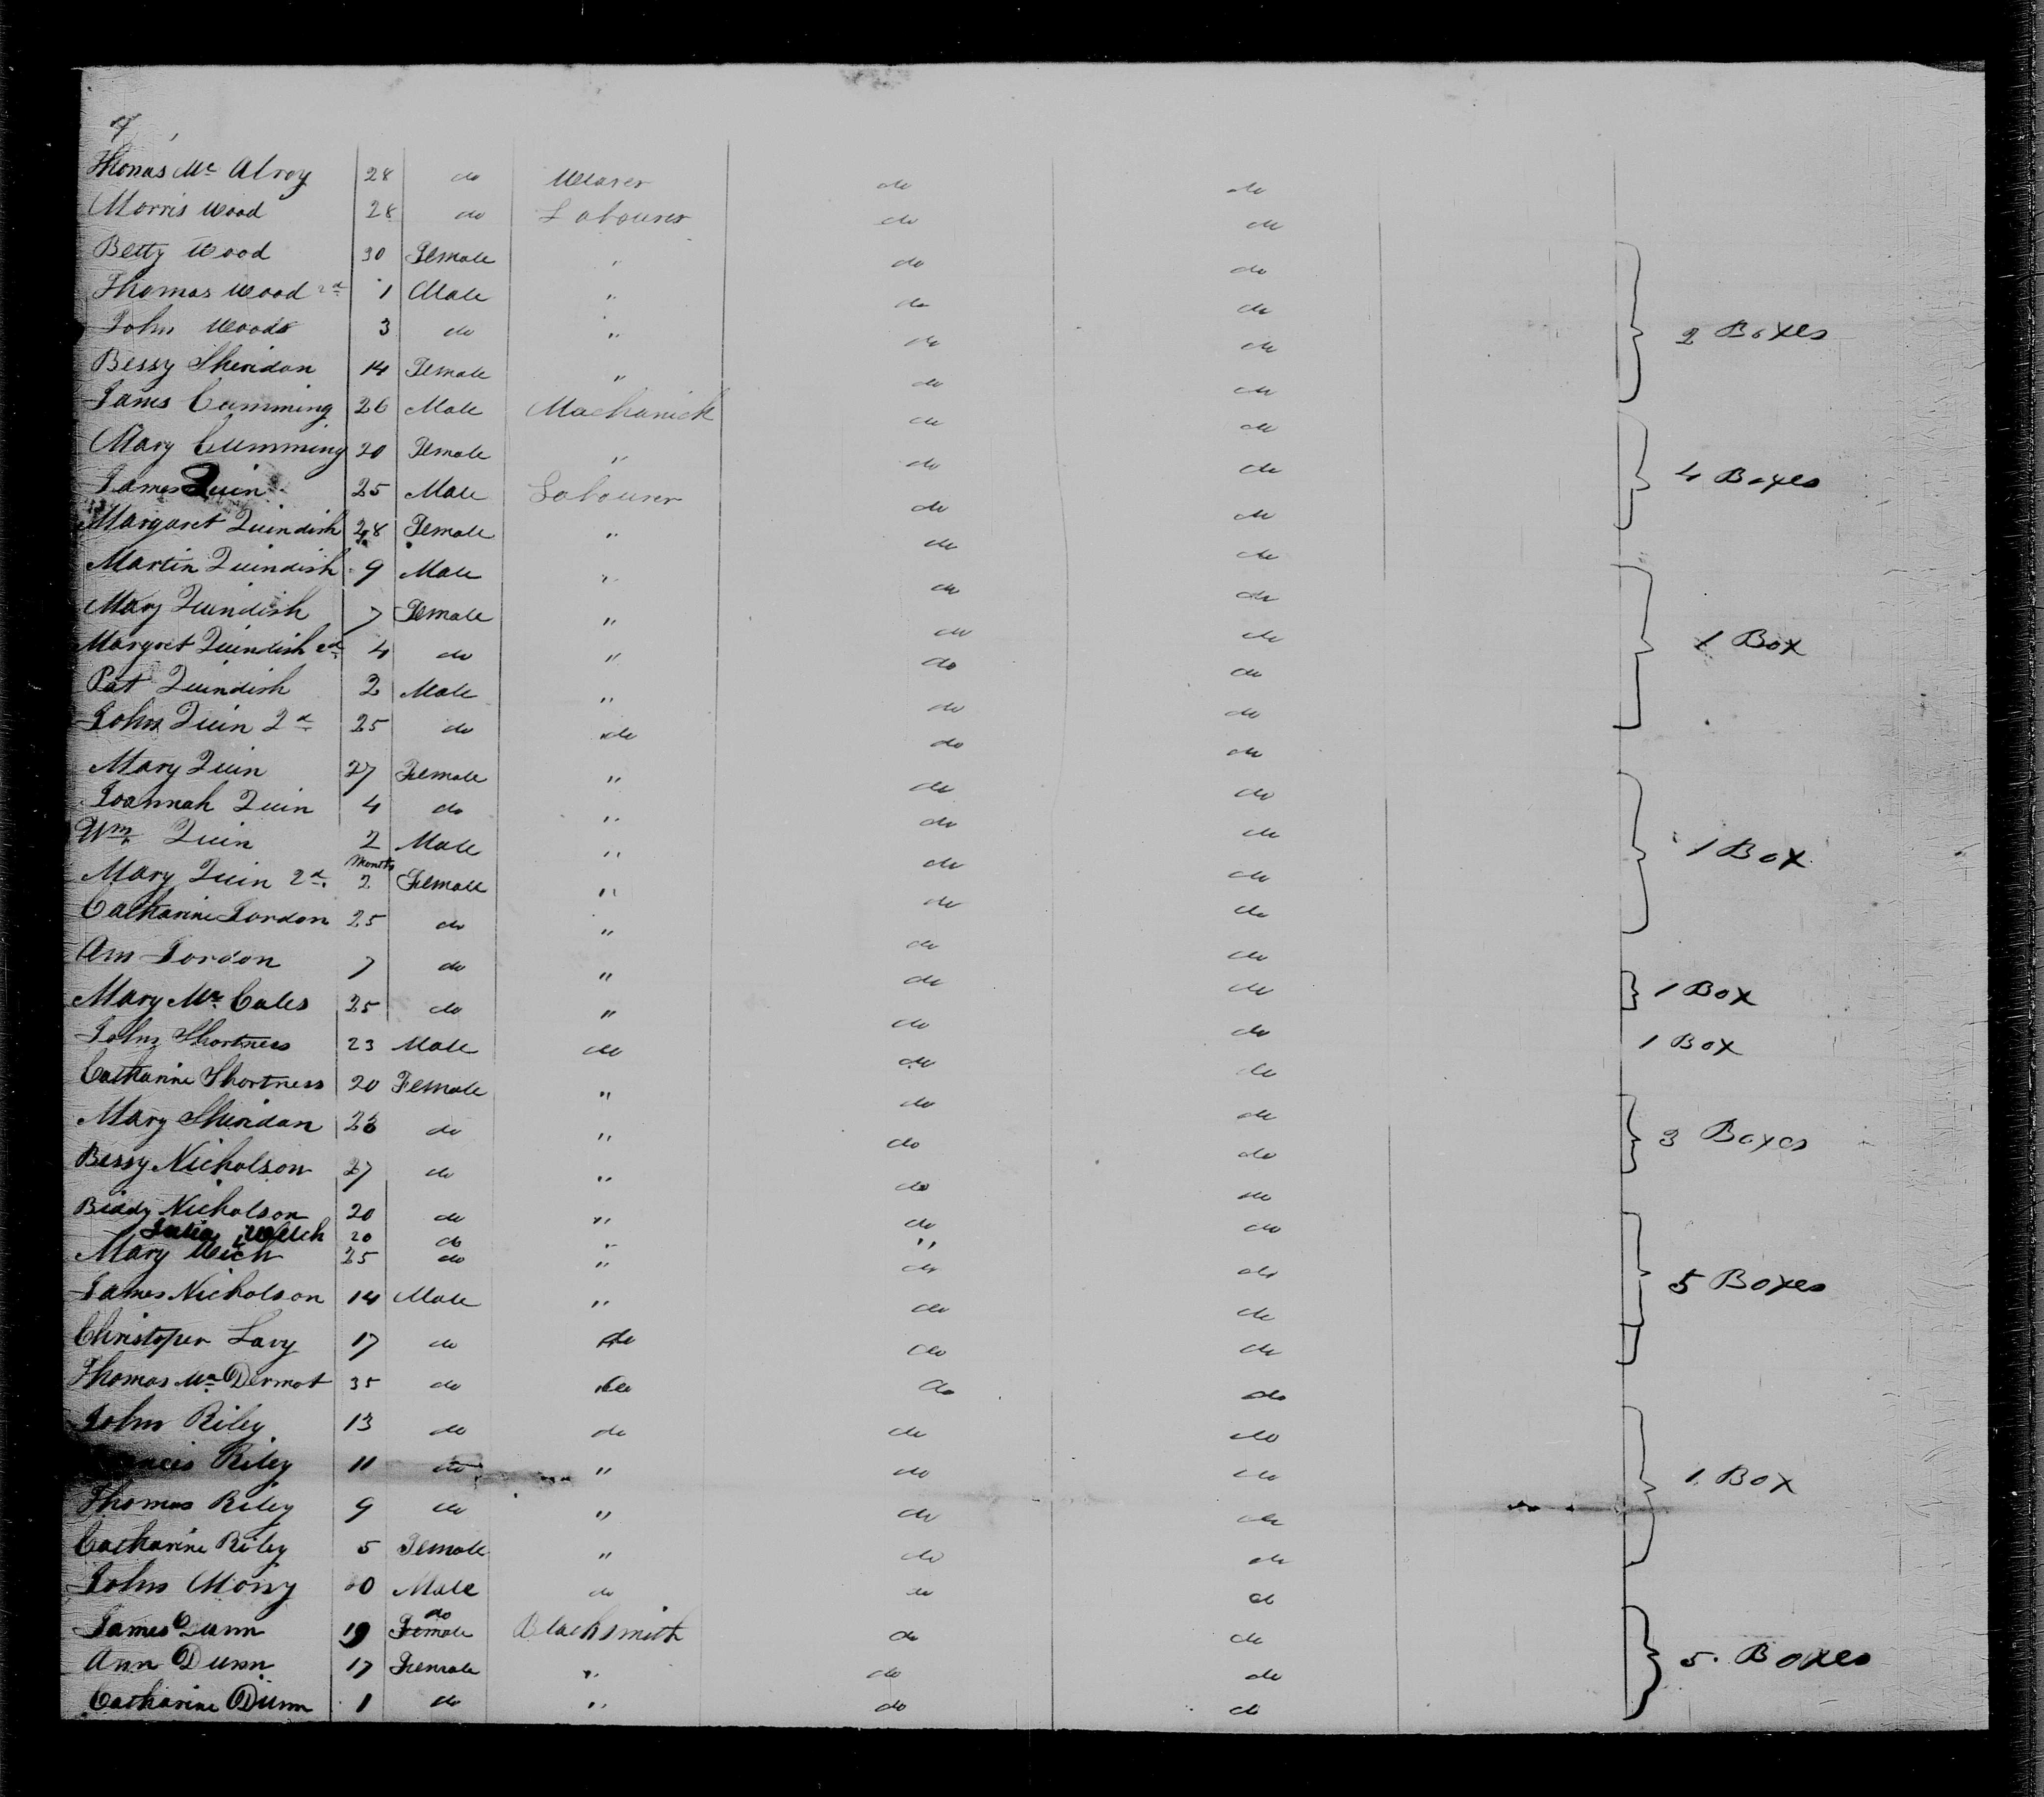 Thomas Mc Alroy 28 do Weaver do do
Morris Wood 28 do Labourer do do
Betty Wood 30 Female " do do
Thomas Wood 2d 1 Male " do do
John Woods 3 do " do do 2 Boxes
Bessy Sheridan 14 Female " do do
James Cumming 26 Male Machanick do do
Mary Cumming 20 Female " do do
James Quin 25 Male Labourer do do 4 Boxes
Margaret Quindish 28 Female " do do
Martin Quindish 9 Male " do do
Mary Quindish 7 Female " do do
Margret Quindish 2d 4 do " do do 1 Box
Pat Quindish 2 Male " do do
John Quin 2d 25 do do do do
Mary Quin 27 Female " do do
Joannah Quin 4 do " do do
Wm Quin 2 Male " do do 1 Box
Mary Quin 2d Months 2 Female " do do
Catharine Jordon 25 do " do do
Ann Jordon 7 do " do do
Mary Mc Cales 25 do " do do 1 Box
John Shortness 23 Male do do do 1 Box
Catharine Shortness 20 Female " do do
Mary Sheridan 26 do " do do 3 Boxes
Bessy Nicholson 27 do " do do
Biddy Nicholson 20 do " do do
Julia Welch 20 do " "
Mary Welch 25 do " do do 5 Boxes
James Nicholson 14 Male " do do
Christoper Lavy 17 do do do do
Thomas Mc Dermot 35 do do do do
John Riley 13 do do do do
Riley 11 do " do do 1 Box
Thomas Riley 9 do " do do
Catharine Riley 5 Female " do do
John Male do do do
James Dunn 19 Female do Blacksmith do do
Ann Dunn 17 Female " do do 5 Boxes
Catharine Dunn 1 do " do do